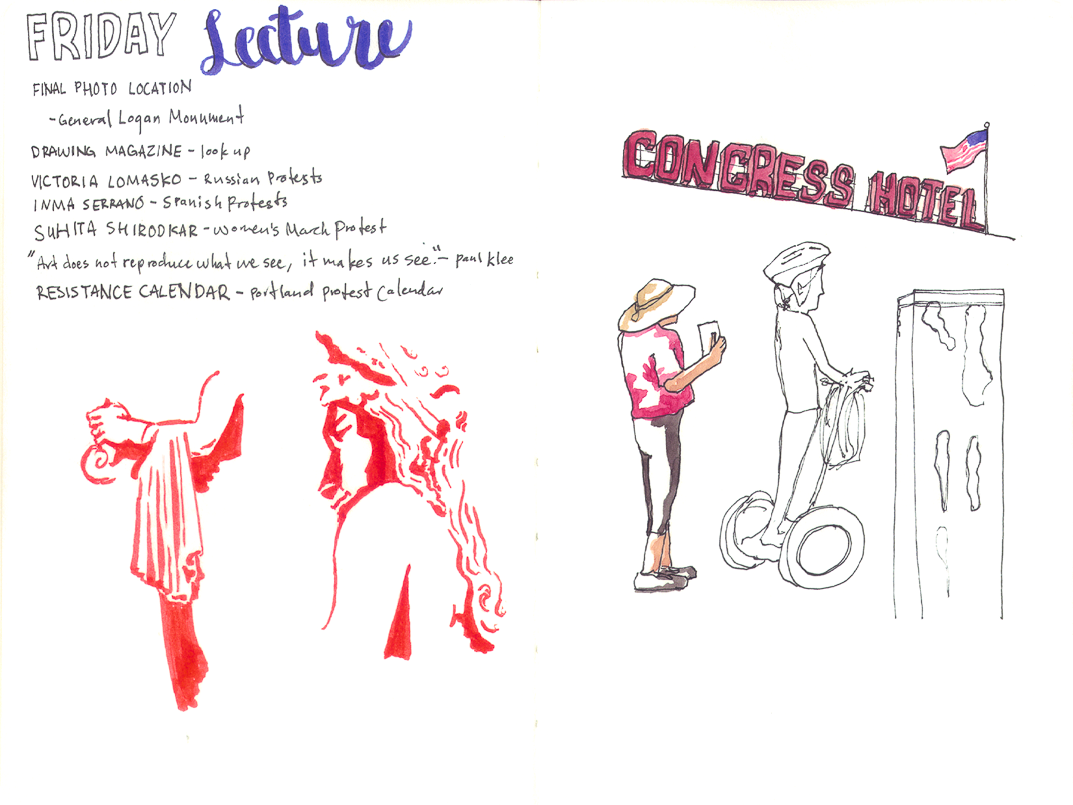 FRIDAY Lecture
FINAL PHOTO LOCATION
- General Logan Monument
DRAWING MAGAZINE - look up
VICTORIA LOMASKO - Russian Protests
INMA SERRANO - Spanish Protests
SUHITA SHIRODKAR - Women's March Protest
"Art does not reproduce what we see, it makes us see." - Paul Klee
RESISTANCE CALENDAR - Portland Protest Calendar
CONGRESS HOTEL